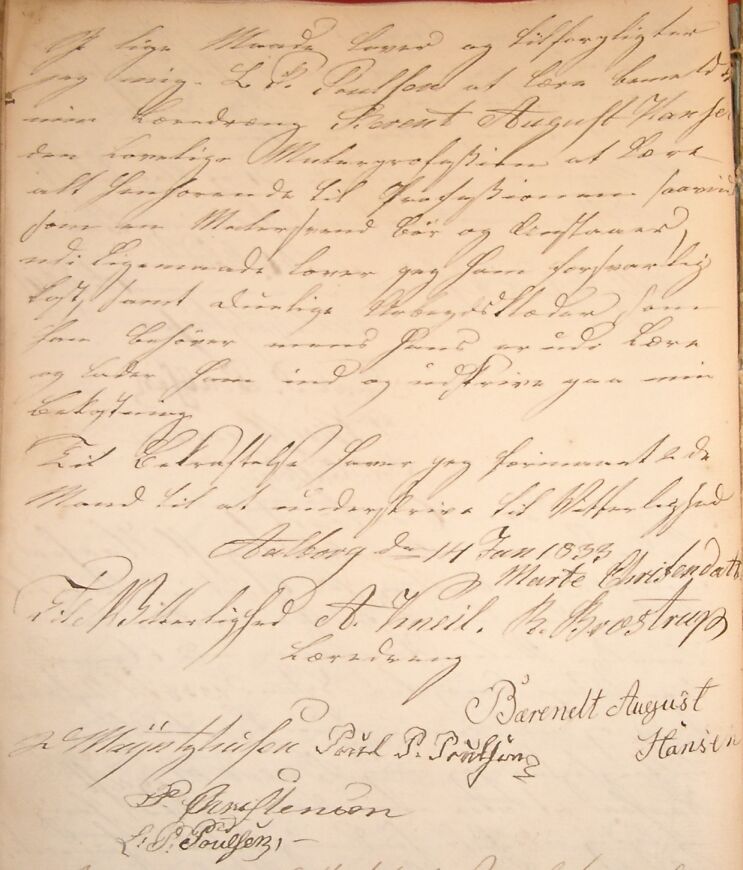 I lige Maade lover og tilforpligter
jeg mig L. P. Poulsen at lære bemeldte
min Læredræng Berent August Hanse
den lovelige Malerprofession at Lære
alt henhørende til Professionen saavidt
som en Malersvend bør og Anstaaer,
udi ligemaade lover jeg ham forsvarlig
kost, samt Duelige Arbeydsklæder som
han behøver mens hans er udi Lære
og lader ham ind og udskrive paa min
bekostning
Til Bekræftelse haver jeg formaaet 2de
Mænd til at underskrive til Vitterlighed
Aalborg d 14 Jan 1833
Marte Christendatt
Til Vitterlighed A. Kneil. R. Brøstrup
Læredreng
Bærendt August
Hansen
Poul P. Poulsen
P Christensen
L. P. Poulsen,